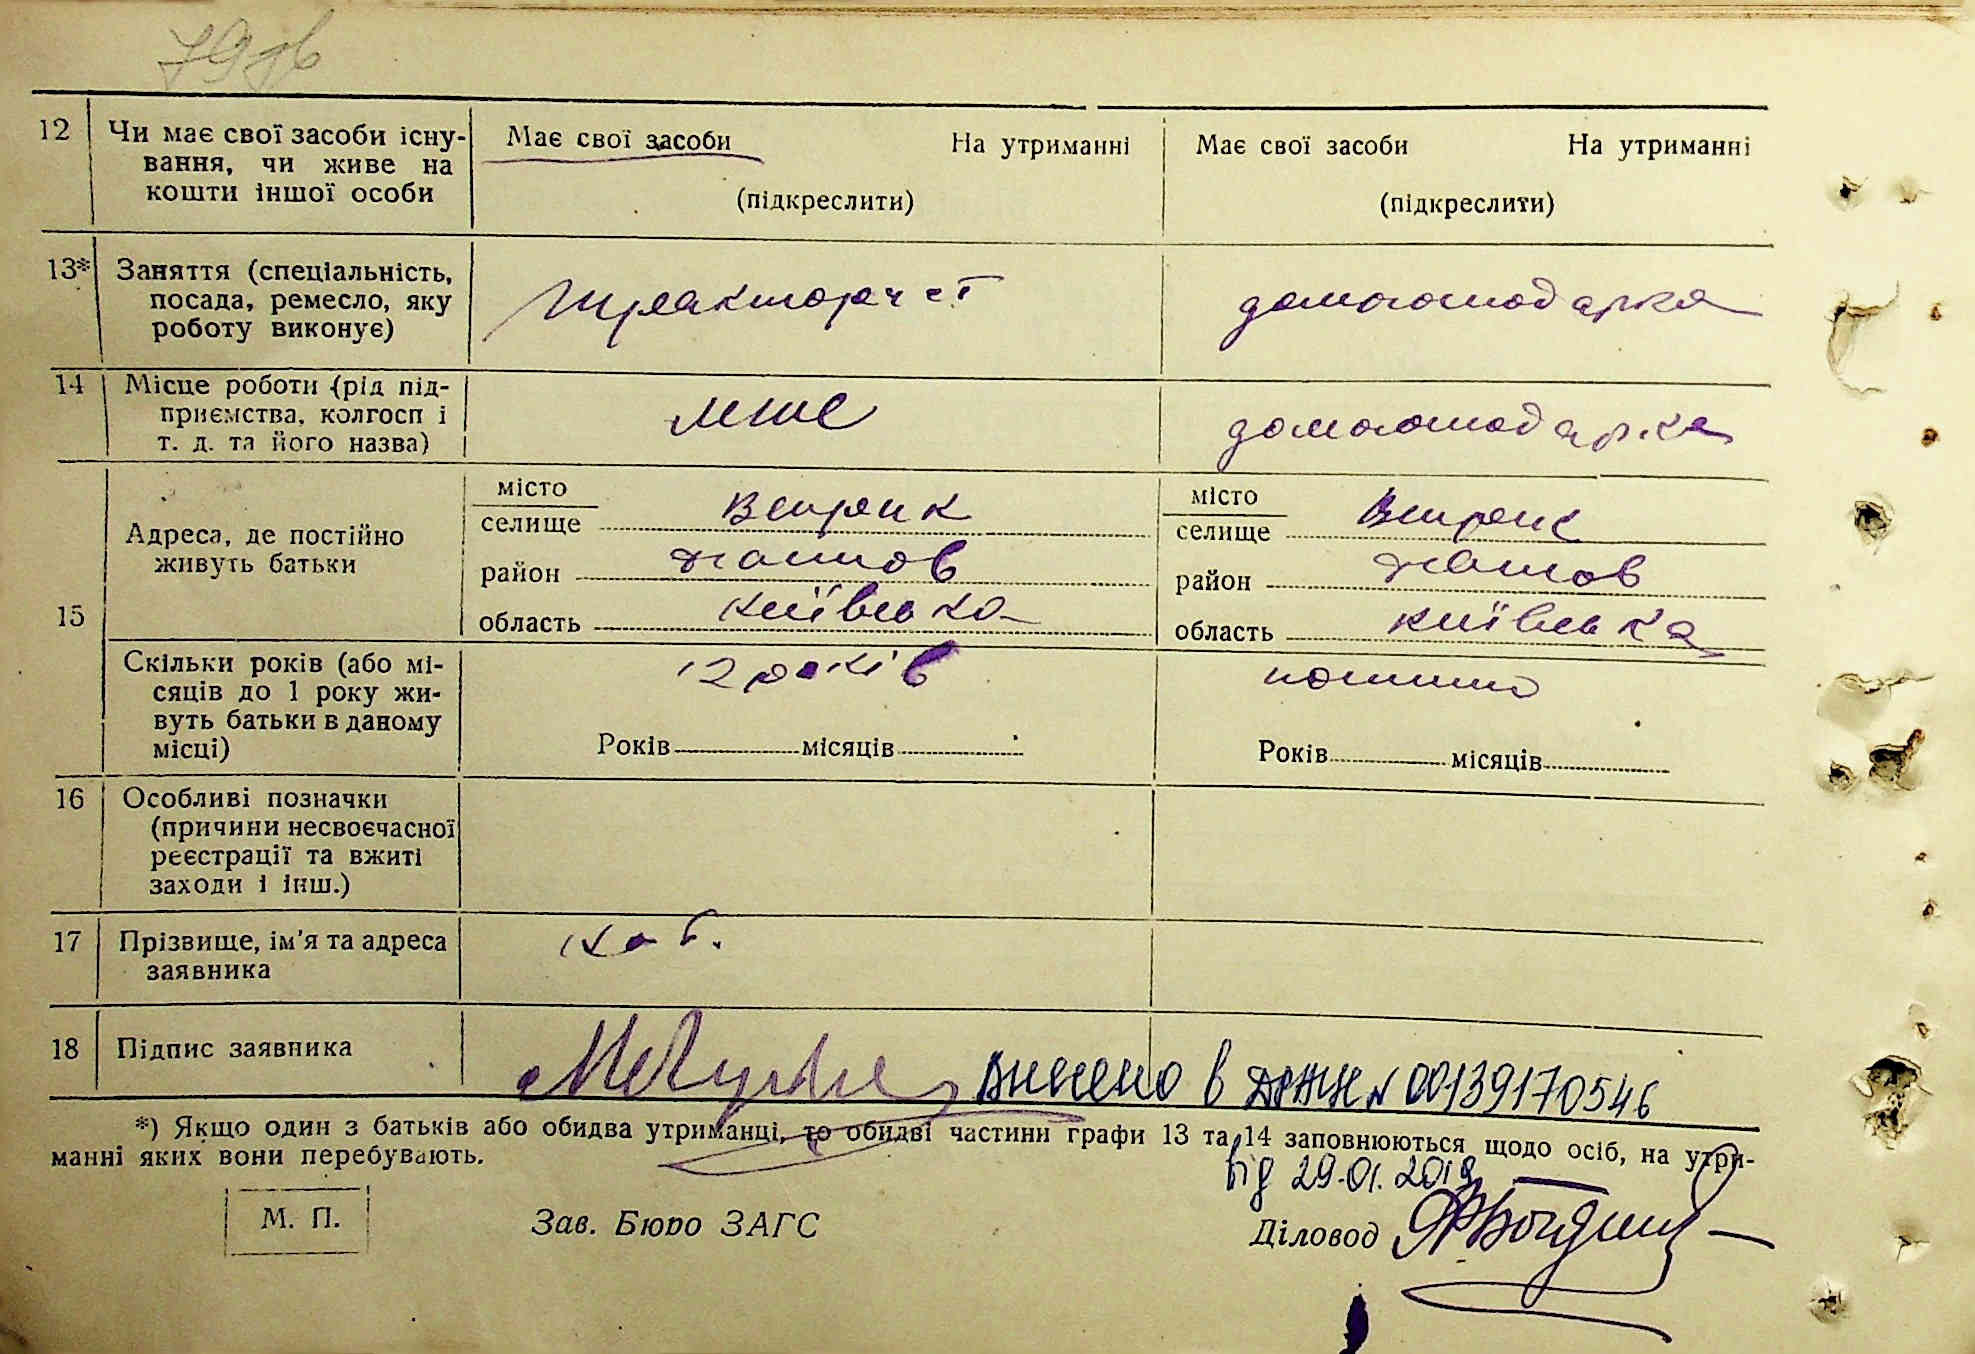 79 дв
12 Чи має свої засоби існу-
вання, чи живе на
кошти іншої особи
Має свої засоби На утриманні
(підкреслити)
Має свої засоби На утриманні
(підкреслити)
13* Заняття (спеціальність,
посада, ремесло, яку
роботу виконує)
тракторист
домогосподарка
14 Місце роботи (рід під-
приємства, колгосп і
т. д. та його назва)
МТС
домогосподарка
15 Адреса, де постійно
живуть батьки
місто
селище Ветренк
район
область київська
місто
селище Ветренк
район
область київська
Скільки років (або мі-
сяців до 1 року жи-
вуть батьки в даному
місці)
12 років
Років місяців
постійно
Років місяців
16 Особливі позначки
(причини несвоєчасної
реєстрації та вжиті
заходи і інш.)
17 Прізвище, ім'я та адреса
заявника
18 Підпис заявника
внесено в ДРАЦС № 00139170546
*) Якщо один з батьків або обидва утриманці, то обидві частини графи 13 та 14 заповнюються щодо осіб, на утри-
манні яких вони перебувають.
від 29.01.2019
М. П.
Зав. Бюро ЗАГС
Діловод